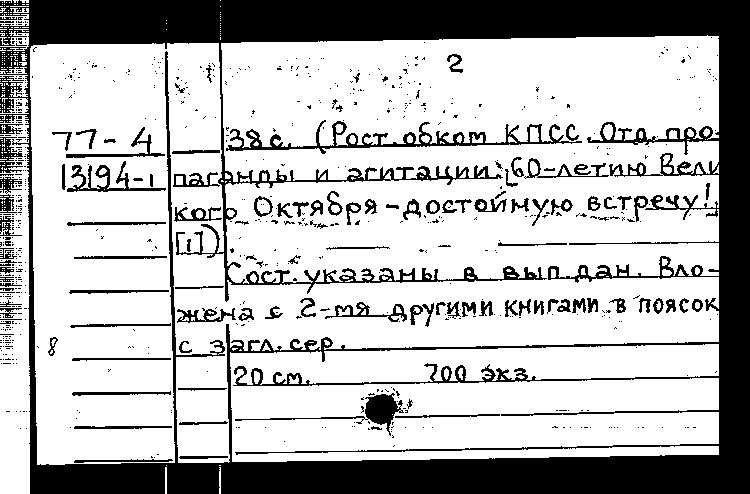 2
77-4 38 с. (Рост. обком КПСС. Отд. про-
13194-1 паганды и агитации; 60-летию Вели
кого Октября - достойную встречу!,
[1]).
Сост. указаны в вып. дан. Вло-
жена с 2-мя другими книгами в поясок
8 с загл. сер.
20 см. 700 экз.